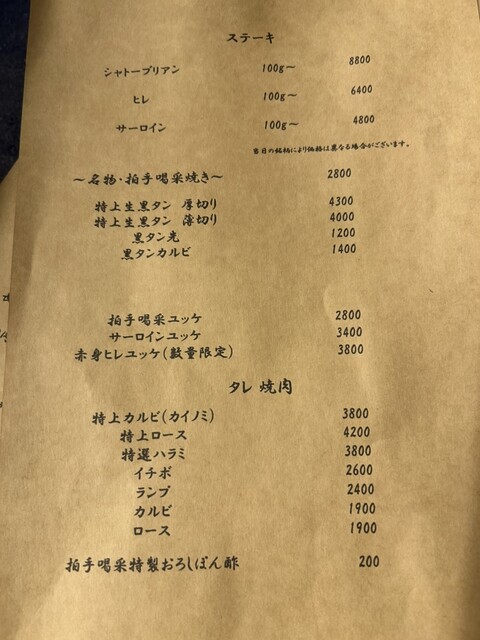 ステーキ
シャトーブリアン 100g~ 8800
ヒレ 100g~ 6400
サーロイン 100g~ 4800
当日の銘柄により価格は異なる場合がございます。
~名物・拍手喝采焼き~ 2800
特上生黒タン 厚切り 4300
特上生黒タン 薄切り 4000
黒タン先 1200
黒タンカルビ 1400
拍手喝采ユッケ 2800
サーロインユッケ 3400
赤身ヒレユッケ(数量限定) 3800
タレ 焼肉
特上カルビ(カイノミ) 3800
特上ロース 4200
特選ハラミ 3800
イチボ 2600
ランプ 2400
カルビ 1900
ロース 1900
拍手喝采特製おろしぽん酢 200